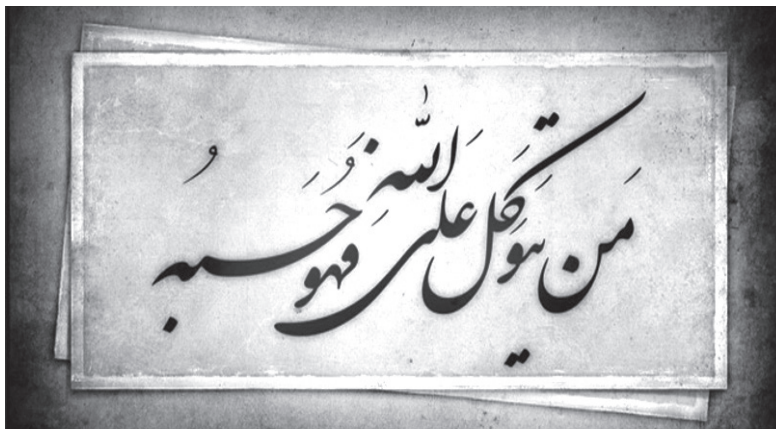 مَن يَتَوَكَّل عَلَى اللّٰهِ فَهُوَ حَسبُهُ